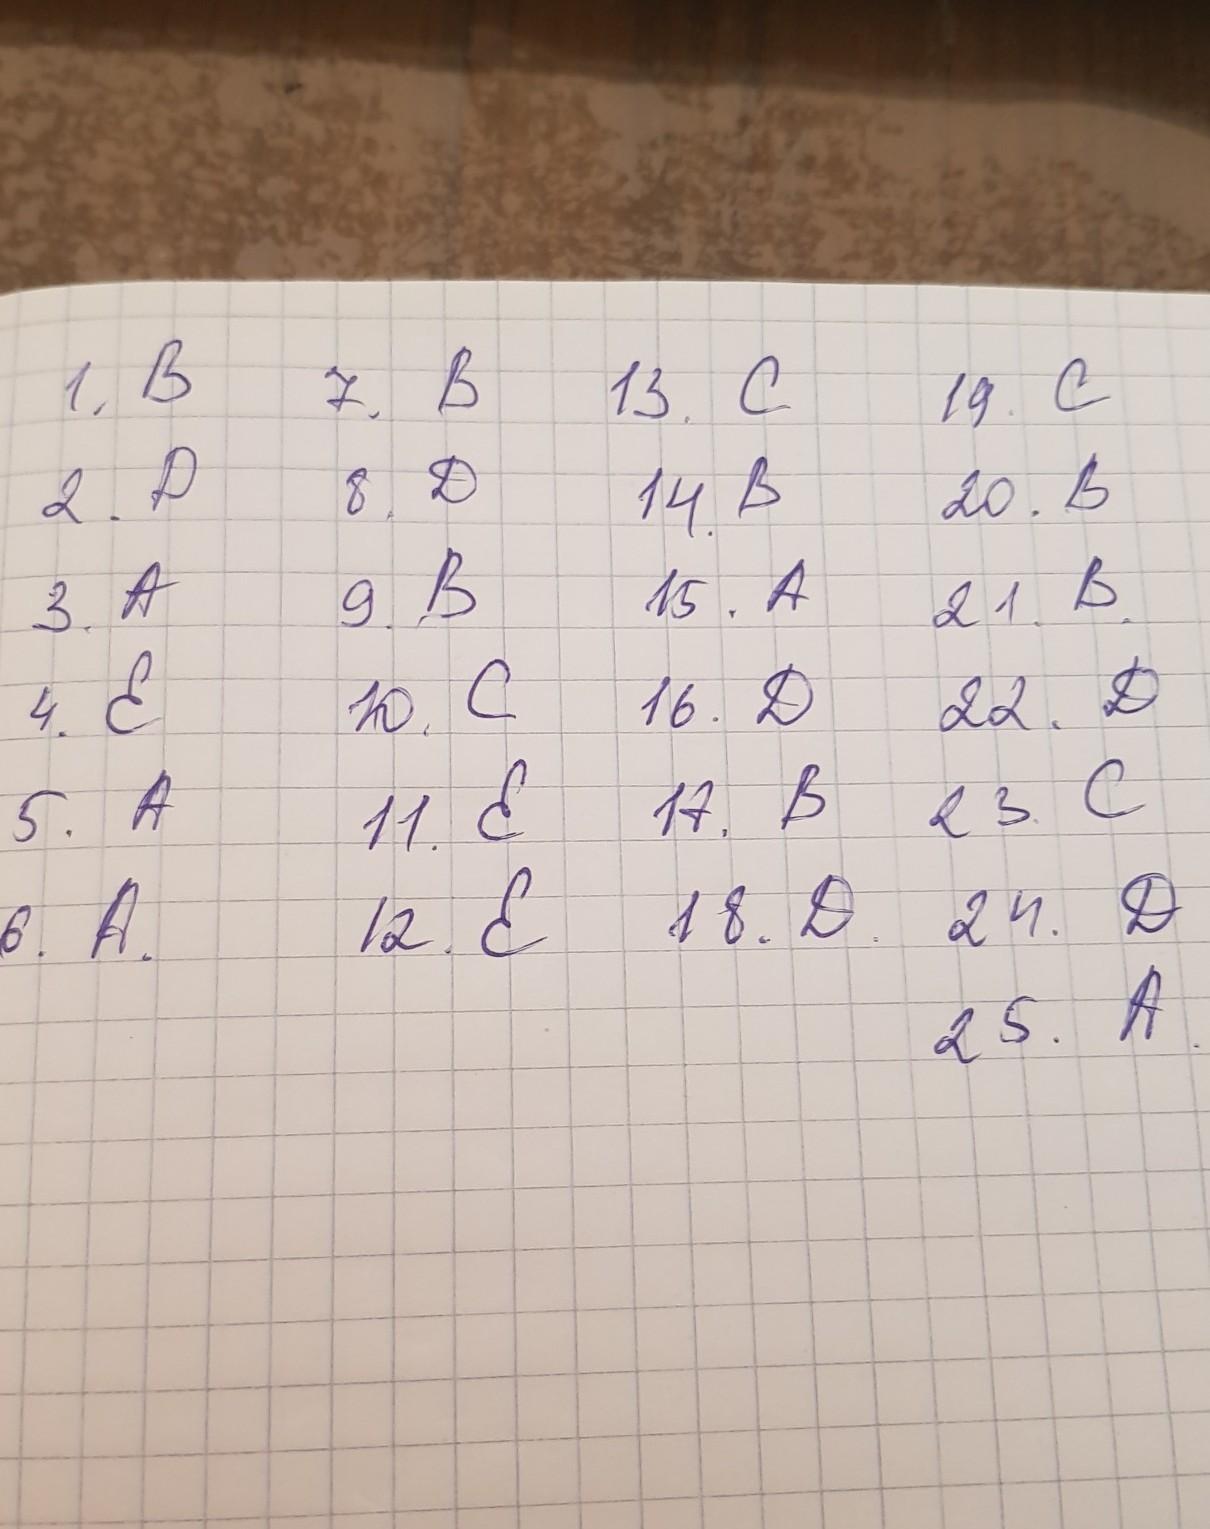 1. B
2. D
3. A
4. E
5. A
6. A.
7. B
8. D
9. B
10. C
11. E
12. E
13. C
14. B
15. A
16. D
17. B
18. D.
19. C
20. B
21. B.
22. D
23. C
24. D
25. A.